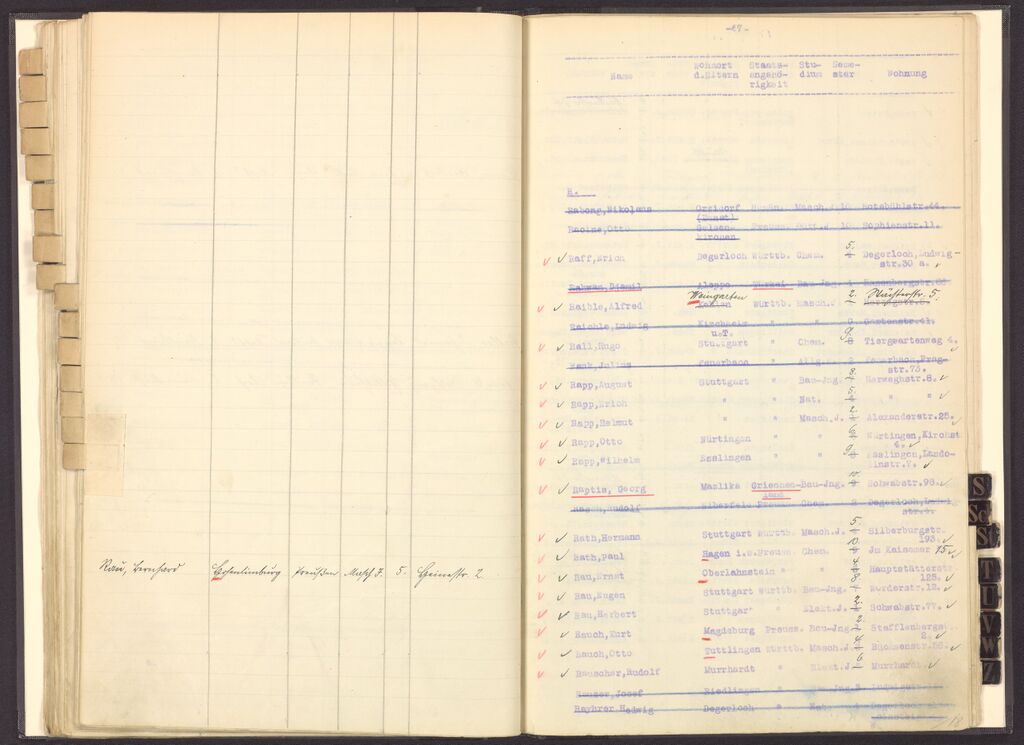 Rau, Bernhard Preußen Masch. J. 5. Heinestr. 2.
-47-
Name Wohnort d.Eltern Staats-angehö-rigkeit Stu-dium Seme-ster Wohnung
R.
Rabong,Nikolaus Orsidorf Masch. 10 Rotebühlstr.44.
(Banat)
Racine,Otto Gelsen- Preuss. 10 Sophienstr.11.
kirchen
5.
Raff,Erich Degerloch Württb. Chem. Degerloch,Ludwig-
str.30 a.
Rahman,Djemil Aleppo Türkei Bau-Jng.
Weingarten 2. 5.
Raible,Alfred Württb. Masch.J.
Raichle,Ludwig Kirchheim " " Gartenstr.41.
u.T. 9.
Rall,Hugo Stuttgart " Chem. 8 Tiergartenweg 4.
Rank,Julius Feuerbach " Allg. 2 Feuerbach,Prag-
8. str.73.
Rapp,August Stuttgart " Bau-Jng. Herweghstr.8.
5.
Rapp,Erich " " Nat. " "
2.
Rapp,Helmut " " Masch.J. Alexanderstr.25.
6.
Rapp,Otto Nürtingen " " Nürtingen,Kirchst
9. 4.
Rapp,Wilhelm Esslingen " " Esslingen,Lando-
linstr.7.
Raptis, Georg Griechen- Bau-Jng. Schwabstr.98.
land
Rasch,Rudolf Elberfeld Preuss. Chem. 2 Degerloch,
5.
Rath,Hermann Stuttgart Württb. Masch.J. Silberburgstr.
10. 193.
Rath,Paul Hagen i.W. Preuss. Chem. Jm Kaisemer 15.
4.
Rau,Ernst Oberlahnstein " " Hauptstätterstr
8. 125.
Rau,Eugen Stuttgart Württb. Bau-Jng. 12.
2.
Rau,Herbert Stuttgart " Elekt.J. Schwabstr.77.
2.
Rauch,Kurt Magdeburg Preuss. Bau-Jng. Stafflenbergst.
4. 2.
Rauch,Otto Tuttlingen Württb. Masch.J. Büchsenstr.
6
Rauscher,Rudolf Murrhardt " Elekt.J. Murrhardt.
Josef Riedlingen " Bau-Jng.
Rayhrer,Hedwig Degerloch " Degerloch
18
S
Sch
St
T
U
V
W
Z